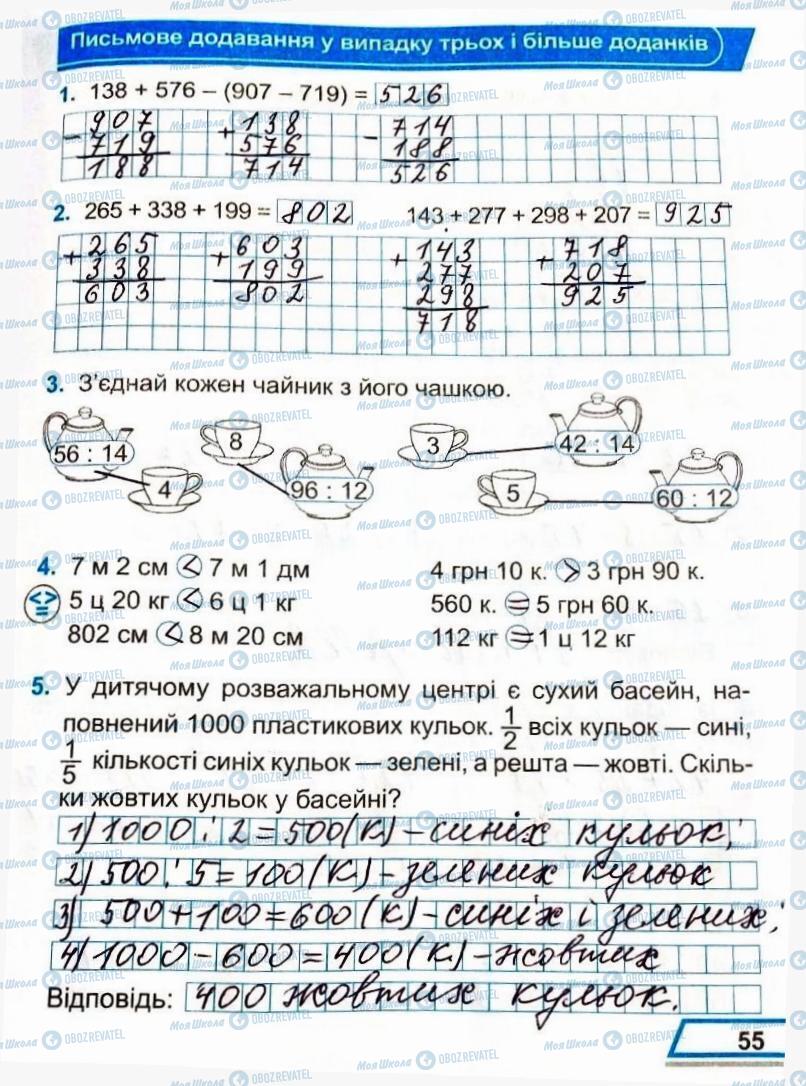 Письмове додавання у випадку трьох і більше доданків
1. 138 + 576 – (907 – 719) = 526
– 907 + 138 – 714
719 576 188
188 714 526
2. 265 + 338 + 199 = 802 143 + 277 + 298 + 207 = 925
+ 265 + 603 + 143 + 718
338 199 277 207
603 802 298 925
718
3. З'єднай кожен чайник з його чашкою.
56 : 14 8 3 42 : 14
4 96 : 12 5 60 : 12
4. 7 м 2 см < 7 м 1 дм 4 грн 10 к. > 3 грн 90 к.
<>= 5 ц 20 кг < 6 ц 1 кг 560 к. = 5 грн 60 к.
802 см < 8 м 20 см 112 кг = 1 ц 12 кг
5. У дитячому розважальному центрі є сухий басейн, на-
повнений 1000 пластикових кульок. 1/2 всіх кульок — сині,
1/5 кількості синіх кульок — зелені, а решта — жовті. Скіль-
ки жовтих кульок у басейні?
1) 1000 : 2 = 500 (К) – синіх кульок;
2) 500 : 5 = 100 (К) – зелених кульок
3) 500 + 100 = 600 (К) – синіх і зелених;
4) 1000 – 600 = 400 (К) – жовтих
Відповідь: 400 жовтих кульок.
55
Моя Школа OBOZREVATEL